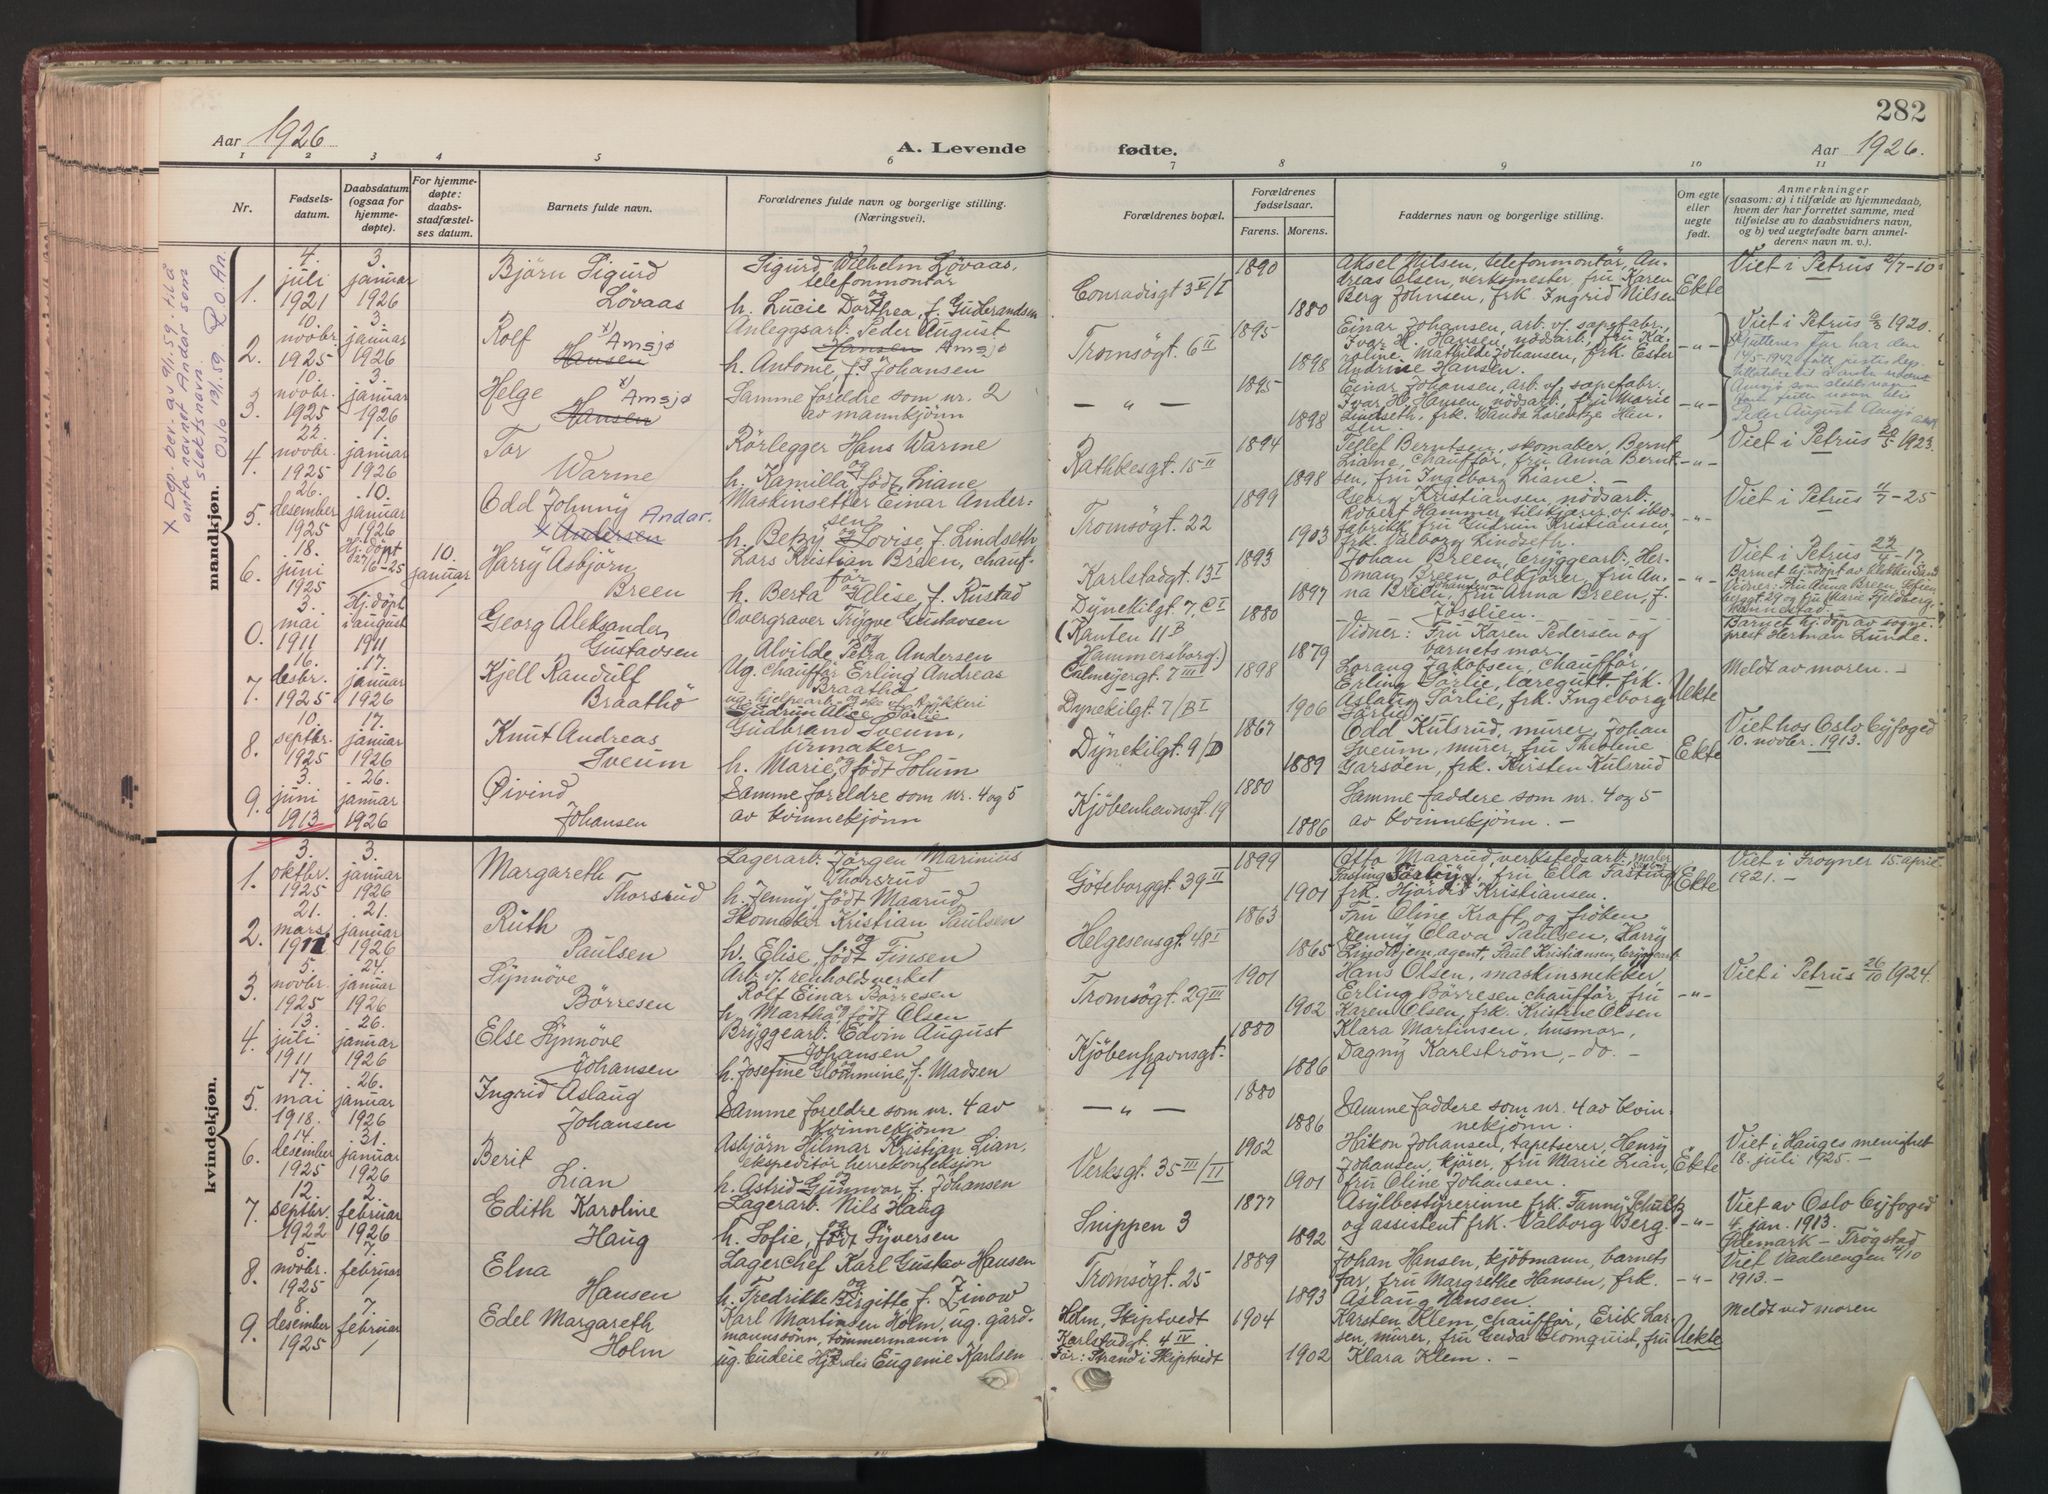 282
Aar 1926
A. Levende
fødte.
Aar 1926.
1 2 3 4 5 6 7 8 9 10 11
Nr.
Fødsels-
datum.
Daabsdatum
(ogsaa for
hjemme-
døpte).
For hjemme-
døpte:
daabs-
stadfæstel-
ses datum.
Barnets fulde navn.
Forældrenes fulde navn og borgerlige stilling.
(Næringsvei).
Forældrenes bopæl.
Forældrenes
fødselsaar.
Farens. Morens.
Faddernes navn og borgerlige stilling.
Om egte
eller
uegte
født.
Anmerkninger
(saasom: a) i tilfælde av hjemmedaab,
hvem der har forrettet samme, med
tilføielse av to daabsvidners navn,
og b) ved uegtefødte barn anmel-
derens navn m. v.).
mandkjøn.
X Dep. bev. av 9/1.59. til å
anta navnet Andar som
slektsnavn.
Oslo 13/1.59.
1.
4.
juli
1921
3.
januar
1926
Bjørn Sigurd
Løvaas
Sigurd Wilhelm Løvaas,
telefonmontør
og
h. Lucie Dorthea, f. Gudbrandsen
Conradisgt 3 V/I
1890
1880
Aksel Nilsen, telefonmontør, An-
dreas Olsen, verksmester fru Karen
Berg Johnsen, frk. Ingrid Nilsen
Ekte
Viet i Petrus 2/7-10
2.
10.
novbr.
1925
3.
januar
1926
Rolf
x) Amsjø
Hansen
Anleggsarb. Peder August
Hansen Amsjø
h. Antonie, f. Johansen
Tromsøgt 6 II
1895
1898
Einar Johansen, arb. v. sæpefabr.,
Ivar H. Hansen, nødsarb., fru Ka-
roline Mathilde Johansen, frk. Ester
Andrine Hansen.
-"-
Viet i Petrus 6/3 1920.
Guttenes far har den
14/5-1942 fått justisdep.
tillatelse til å anta navnet
Amsjø som slektsnavn
fulle navn blir
Peder August Amsjø
3.
10.
novbr.
1925
3.
januar
1926
Helge
x) Amsjø
Hansen
Samme foreldre som nr. 2
av mannkjønn
- " -
1895
1898
Einar Johansen, arb. v. sæpefabr.
Ivar H. Hansen, nødsarb., fru Marie
Lindseth, frk. Wanda Lorentze Han-
sen.
-"-
4.
22.
novbr.
1925
1.
januar
1926
Tor
Warme
Rørlegger Hans Warme
og
h. Kamilla, født Liane
Rathkesgt. 15 II
1894
1898
Tellef Berntsen, skomaker, Bernt
Liane, chauffør, fru Anna Bernt-
sen, fru Ingeborg Liane. -
-"-
Viet i Petrus 20/5 1923.
5.
26.
desember
1925
10.
januar
1926
Odd Johnny
Andar.
x Andersen
Maskinsetter Einar Ander-
sen
h. Betzy Lovise, f. Lindseth
Tromsøgt. 22
1899
1903
Georg Kristiansen, nødsarb.
Robert Hammer, tilskjærer v. sko-
fabrikk, fru Gudrun Kristiansen,
frk. Valborg Lindseth.
-"-
Viet i Petrus 11/7-25
6.
18.
juni
1925
Hj. døpt
27/6-25
10.
januar
Harry Asbjørn
Breen
Lars Kristian Breen, chauf-
før
h. Berta Alise, f. Rustad
Karlstadgt. 13 I
1893
1897
Johan Breen, bryggearb., Her-
man Breen, ølkjører, fru An-
na Breen, fru Anna Breen, f.
Jøsslien.
-"-
Viet i Petrus 22/4-17
Barnet hj.døpt av
Vidner: Fru Anna Breen,
29 og fru Marie Fjeldberg,
0.
3.
mai
1911
Hj. døpt
i august
1911
Georg Aleksander
Gustavsen
Overgraver Trygve Gustavsen
og
Alvilde Petra Andersen
Dynekilgt. 7, C I
(Kanten 11 B
Hammersborg.)
1880
1879
Vidner: Fru Karen Pedersen og
barnets mor.
Barnet hj. døpt av sogne-
prest Herman Lunde.
7.
16.
desbr.
1925
17.
januar
1926
Kjell Randulf
Braathø
Ug. chauffør Erling Andreas
Braathø
Gudrun Alice Sørlie
Calmeyergt. 7 III
1898
1906
Lorang Jakobsen, chauffør,
Erling Sørlie, læregutt, frk.
Aslaug Sørlie, frk. Ingeborg
Sørlie
Uekte
Meldt av moren. -
8.
10.
septbr.
1925
17.
januar
1926
Knut Andreas
Sveum
Gudbrand Sveum,
urmaker
og
h. Marie, født Solum
Dynekilgt. 7/B I
Dynekilgt 9/D
1867
1889
Odd Kulsrud, murer, Johan
Sveum, murer, fru Theolene
Garsøen, frk. Kirsten Kulsrud
Ekte
Viet hos Oslo byfoged
10. novbr. 1913.
9.
3.
juni
1913
26.
januar
1926
Øivind
Johansen
Samme foreldre som nr. 4 og 5
av kvinnekjønn
Kjøbenhavnsgt. 19
1880
1886
Samme faddere som nr. 4 og 5
av kvinnekjønn. -
kvindekjøn.
1.
3.
oktbr.
1925
3.
januar
1926
Margareth
Thorsrud
Lagerarb. Jørgen Marinius
Thorsrud
h. Jenny, født Maarud
Göteborggt. 39 II
1899
1901
Otto Maarud, verkstedsarb., maler
Fasting, fru Ella Fasting,
frk. Hjørdis Kristiansen.
Ekte
Viet i Frogner 15 april
1921. -
2.
21.
mars
1911
21.
januar
1926
Ruth
Paulsen
Skomaker Kristian Paulsen
og
h. Elise, født Finsen
Helgesensgt. 48 I
1863
1865
Fru Oline Kraft, og frøken
Jenny Olava Paulsen, Harry
Lindhjem, agent, Paul Kristiansen,
3.
5.
novbr.
1925
24.
januar
1926
Synnøve
Børresen
Arb. v. renholdsverket
Rolf Einar Børresen
h. Martha, født Olsen
Tromsøgt. 29 III
1901
1902
Hans Olsen, maskinsnekker
Erling Børresen, chauffør, fru
Karen Olsen, frk. Kristine Olsen
-"-
Viet i Petrus 26/10 1924.
4.
13.
juli
1911
26.
januar
1926
Else Synnøve
Johansen
Bryggearb. Edvin August
Johansen
og
h. Josefine Glommine, f. Madsen
Kjøbenhavnsgt.
19
1880
1886
Klara Martinsen, husmor,
Dagny Karlstrøm, - do. -
5.
17.
mai
1918.
26.
januar
1926
Ingrid Aslaug
Johansen
Samme foreldre som nr. 4 av
kvinnekjønn
- " -
1880
1886
Samme faddere som nr. 4 av kvin-
nekjønn.
6.
14.
desember
1925
31.
januar
1926
Berit
Lian
Asbjørn Hilmar Kristian Lian,
Ekspeditør herrekonfeksjon
og
h. Astrid Gunnvor, f. Johansen
Verksgt. 35 III/II
1902
1901
Håkon Johansen, tapetserer, Henry
Johansen, kjører, fru Marie Lian,
fru Oline Johansen.
Ekte
Viet i Hauges menighet
18. juli 1925. -
7.
12.
septbr.
1922
2.
februar
1926
Edith Karoline
Haug
Lagerarb. Nils Haug
og
h. Sofie, født Syversen
Snippen 3
1877
1892
Asylbestyrerinne frk. Fanny Schultz
og assistent frk. Valborg Berg
-"-
Viet av Oslo byfoged
4. jan. 1913.
- Trøgstad
8.
5.
novbr.
1925
7.
februar
Elna
Hansen
Lagerchef Karl Gustav Hansen
og
h. Fredrikke Birgitte, f. Zinow
Tromsøgt. 25
1889
1893
Johan Hansen, kjøbmann, barnets
far, fru Margrethe Hansen, frk.
Aslaug Hansen.
-"-
Viet Vaalerengen 4/10
1913. -
9.
8.
desember
1925
7.
februar
Edel Margareth
Holm
Karl Martinsen Holm, ug. gård-
mannssønn, tømmermann
ug. Hjørdis Eugenie Karlsen
Holm, Skiptvedt
Karlstadgt. 4 IV
Før: Strand i Skiptvedt
1904
1902
Karsten Klem, chauffør, Erik Lar-
sen, murer, fru Gerda Blomquist, fru
Klara Klem. -
Uekte
Meldt ved moren